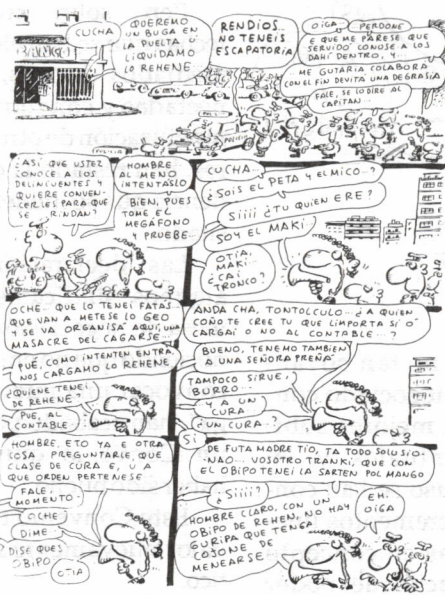 CUCHA
QUEREMO
UN BUGA EN
LA PUELTA O
LIQUIDAMO
LO REHENE
RENDIOS..
NO TENEIS
ESCAPATORIA
OIGA
PERDONE
E QUE ME PARESE QUE
SERVIDO CONOSE A LOS
DAHÍ DENTRO, Y...
ME GUTARIA COLABORÁ
CON EL FIN DEVITÁ UNA DEGRASIA
FALE, SE LO DIRE AL
CAPITAN...
POLICIA
¿ASI QUE USTEZ
CONOCE A LOS
DELINCUENTES Y
QUIERE CONVEN-
CERLES PARA QUE
SE RINDAN?
HOMBRE
AL MENO
INTENTASLO
BIEN, PUES
TOME EL
MEGÁFONO
Y PRUEBE...
CUCHA...
¿SOIS EL PETA Y EL MICO..?
SIIII ¿TU QUIEN ERE?
SOY EL MAKI
OTIA,
MAKI
¿CAI
TRONCO?
OCHE.. QUE LO TENEI FATAS
QUE VAN A METESE LO GEO
Y SE VA ORGANISÁ AQUÍ, UNA
MASACRE DEL CAGARSE...
PUÉ, COMO INTENTEN ENTRÁ,
NOS CARGAMO LO REHENE
¿QUIENE TENEI
DE REHENE?
PUE, AL
CONTABLE
ANDA CHA, TONTOLCULO...¿A QUIEN
COÑO TE CREE TU QUE LIMPORTA SI O
CARGAI O NO AL CONTABLE...?
BUENO, TENEMO TAMBIEN
A UNA SEÑORA PREÑÁ
TAMPOCO SIRVE,
BURRO...
Y A UN
CURA...
¿UN CURA..?
SI
HOMBRE, ETO YA E OTRA
COSA.. PREGUNTARLE, QUE
CLASE DE CURA E, U A
QUE ORDEN PERTENESE
FALE,
MOMENTO
OCHE
DIME
DISE QUES
OBIPO
OTIA
DE FUTA MADRE TÍO, TA TODO SOLUSIO-
NAO... VOSOTRO TRANKI, QUE CON
EL OBIPO TENEI LA SARTEN POL MANGO
¿SIIII?
HOMBRE CLARO, CON UN
OBIPO DE REHEN, NO HAY
GURIPA QUE TENGA
COJONE DE
MENEARSE
EH.
OIGA